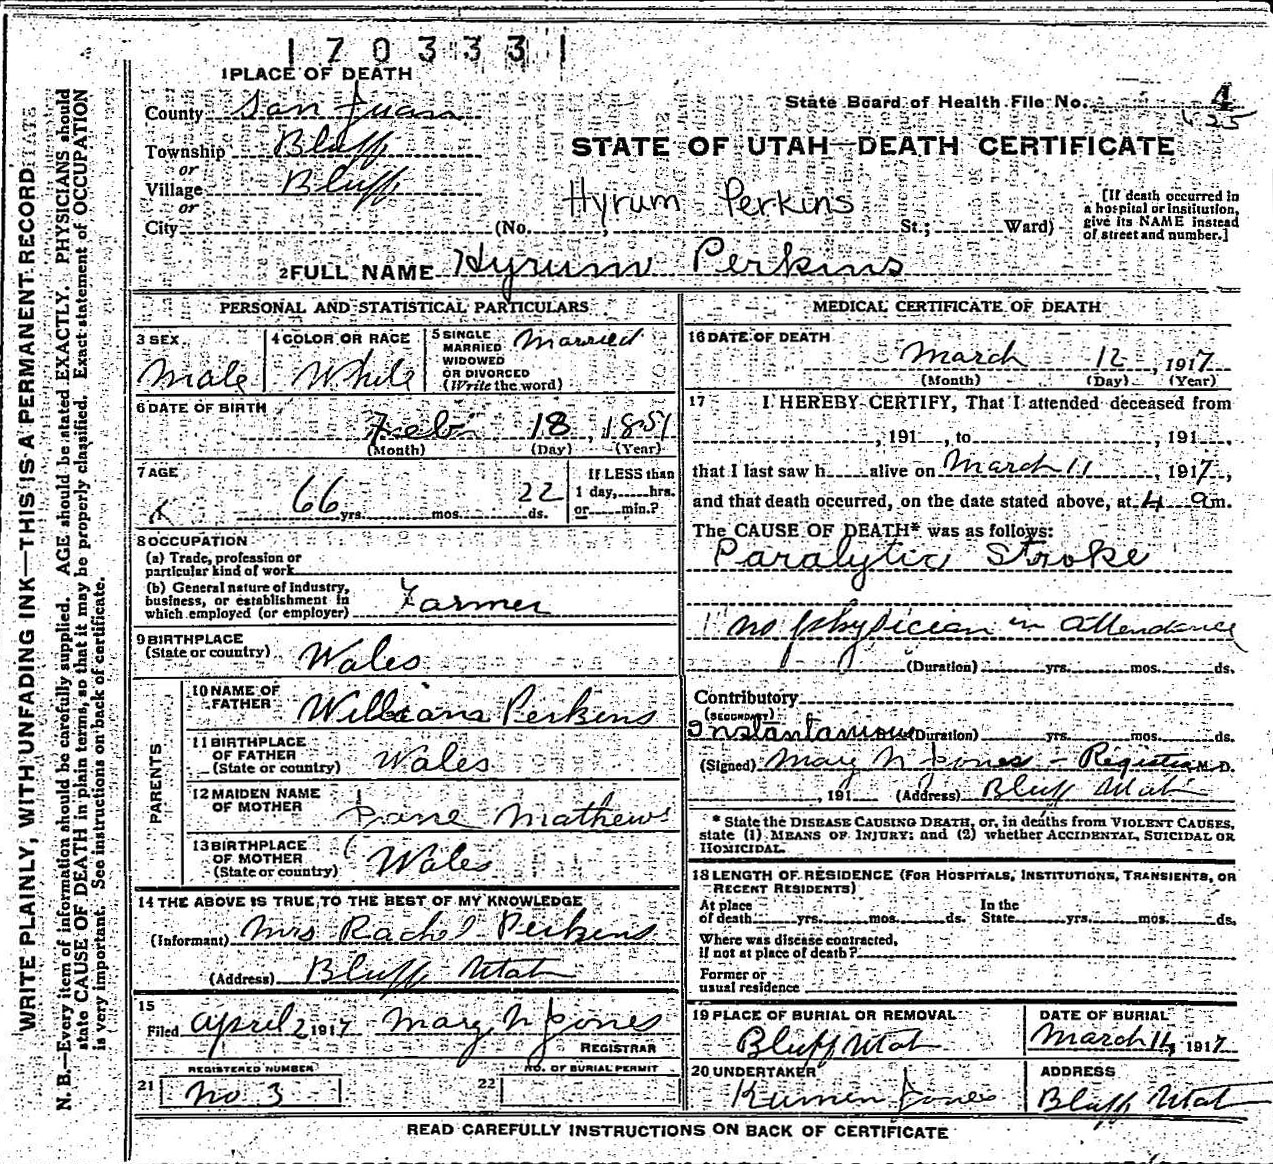 1703331
1 PLACE OF DEATH
County San Juan
State Board of Health File No. 4
25
Township Bluff
or
Village Bluff
or
City
STATE OF UTAH—DEATH CERTIFICATE
Hyrum Perkins
(No. St.; Ward)
[If death occurred in
a hospital or institution,
give its NAME instead
of street and number.]
2 FULL NAME Hyrum Perkins
PERSONAL AND STATISTICAL PARTICULARS
3 SEX
Male
4 COLOR OR RACE
White
5 SINGLE
MARRIED
WIDOWED
OR DIVORCED
(Write the word)
Married
6 DATE OF BIRTH
Feb 18, 1851
(Month) (Day) (Year)
7 AGE
66 yrs. mos. 22 ds.
If LESS than
1 day, hrs.
or min.?
8 OCCUPATION
(a) Trade, profession or
particular kind of work
(b) General nature of industry,
business, or establishment in
which employed (or employer) Farmer
9 BIRTHPLACE
(State or country) Wales
PARENTS
10 NAME OF
FATHER William Perkins
11 BIRTHPLACE
OF FATHER
(State or country) Wales
12 MAIDEN NAME
OF MOTHER Jane Mathews
13 BIRTHPLACE
OF MOTHER
(State or country) Wales
14 THE ABOVE IS TRUE TO THE BEST OF MY KNOWLEDGE
(Informant) Mrs Rachel Perkins
(Address) Bluff Utah
15
Filed April 2 1917 Mary N Jones
REGISTRAR
REGISTERED NUMBER
21 No 3
NO. OF BURIAL PERMIT
22
MEDICAL CERTIFICATE OF DEATH
16 DATE OF DEATH
March 12, 1917
(Month) (Day) (Year)
17 I HEREBY CERTIFY, That I attended deceased from
, 191 , to , 191 ,
that I last saw h alive on March 11, 1917,
and that death occurred, on the date stated above, at 4 a m.
The CAUSE OF DEATH* was as follows:
Paralytic Stroke
no physician in attendance
(Duration) yrs. mos. ds.
Contributory
(SECONDARY)
Instantanious (Duration) yrs. mos. ds.
(Signed) Mary N Jones - Registrar M. D.
, 191 (Address) Bluff Utah
* State the DISEASE CAUSING DEATH, or, in deaths from VIOLENT CAUSES,
state (1) MEANS OF INJURY; and (2) whether ACCIDENTAL, SUICIDAL OR
HOMICIDAL.
18 LENGTH OF RESIDENCE (FOR HOSPITALS, INSTITUTIONS, TRANSIENTS, OR
RECENT RESIDENTS)
At place
of death yrs. mos. ds.
In the
State yrs. mos. ds.
Where was disease contracted,
if not at place of death?
Former or
usual residence
19 PLACE OF BURIAL OR REMOVAL
Bluff Utah
DATE OF BURIAL
March 14, 1917
20 UNDERTAKER
Kumen Jones
ADDRESS
Bluff Utah
READ CAREFULLY INSTRUCTIONS ON BACK OF CERTIFICATE
WRITE PLAINLY, WITH UNFADING INK—THIS IS A PERMANENT RECORD
N. B.—Every item of information should be carefully supplied. AGE should be stated EXACTLY. PHYSICIANS should
state CAUSE OF DEATH in plain terms, so that it may be properly classified. Exact statement of OCCUPATION
is very important. See instructions on back of certificate.